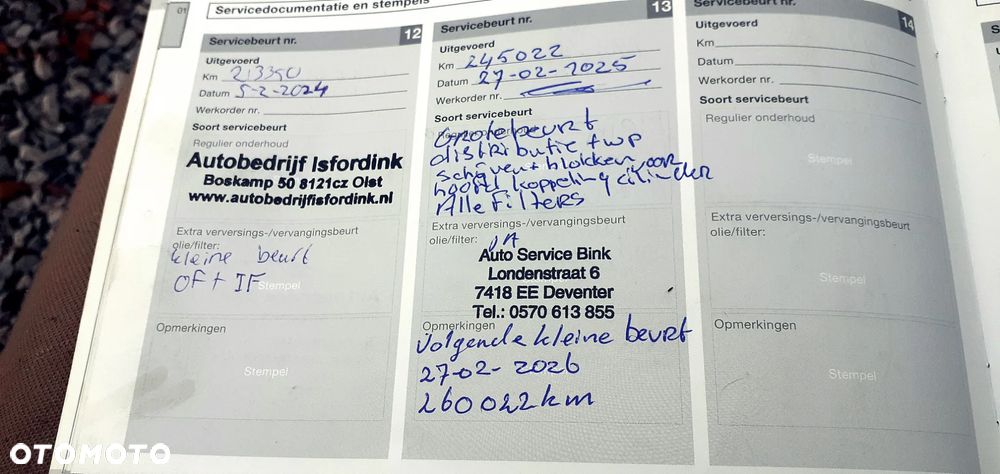 01
Servicedocumentatie en stempels
Servicebeurt nr. 12
Uitgevoerd
Km 213350
Datum 5-2-2024
Werkorder nr.
Soort servicebeurt
Regulier onderhoud
Autobedrijf Isfordink
Boskamp 50 8121cz Olst
www.autobedrijfisfordink.nl
Extra verversings-/vervangingsbeurt
olie/filter:
kleine beurt
OF + IF
Stempel
Opmerkingen
Stempel
Servicebeurt nr. 13
Uitgevoerd
Km 245022
Datum 27-02-2025
Werkorder nr.
Soort servicebeurt
Grote beurt
distributie + wp
schijven + blokken voor
hoofd koppeling cilinder
Alle Filters
Extra verversings-/vervangingsbeurt
olie/filter: JA
Auto Service Bink
Londenstraat 6
7418 EE Deventer
Tel.: 0570 613 855
Opmerkingen
Volgende kleine beurt
27-02-2026
260022 km
Servicebeurt nr. 14
Uitgevoerd
Km
Datum
Werkorder nr.
Soort servicebeurt
Regulier onderhoud
Stempel
Extra verversings-/vervangingsbeurt
olie/filter:
Stempel
Opmerkingen
Stempel
OTOMOTO